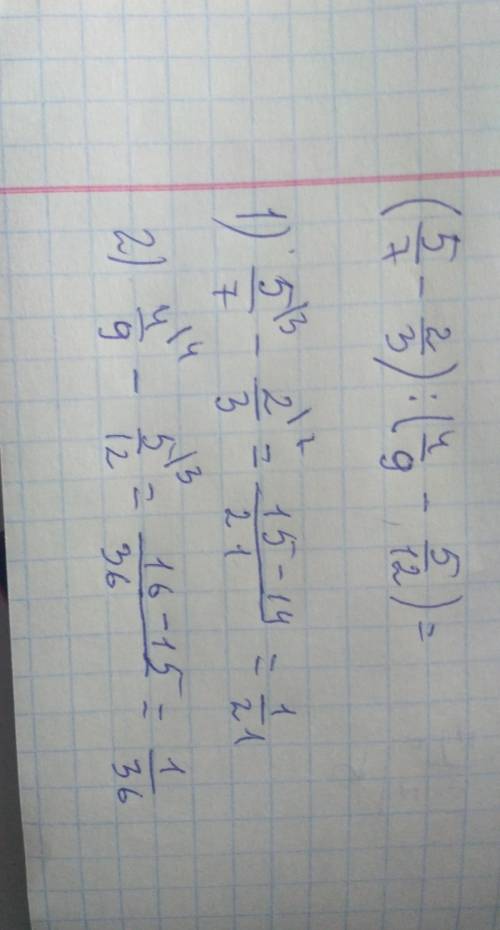 (5/7 - 2/3) : (4/9 - 5/12) =
1) 5\3/7 - 2\7/3 = 15-14/21 = 1/21
2) 4\4/9 - 5\3/12 = 16-15/36 = 1/36